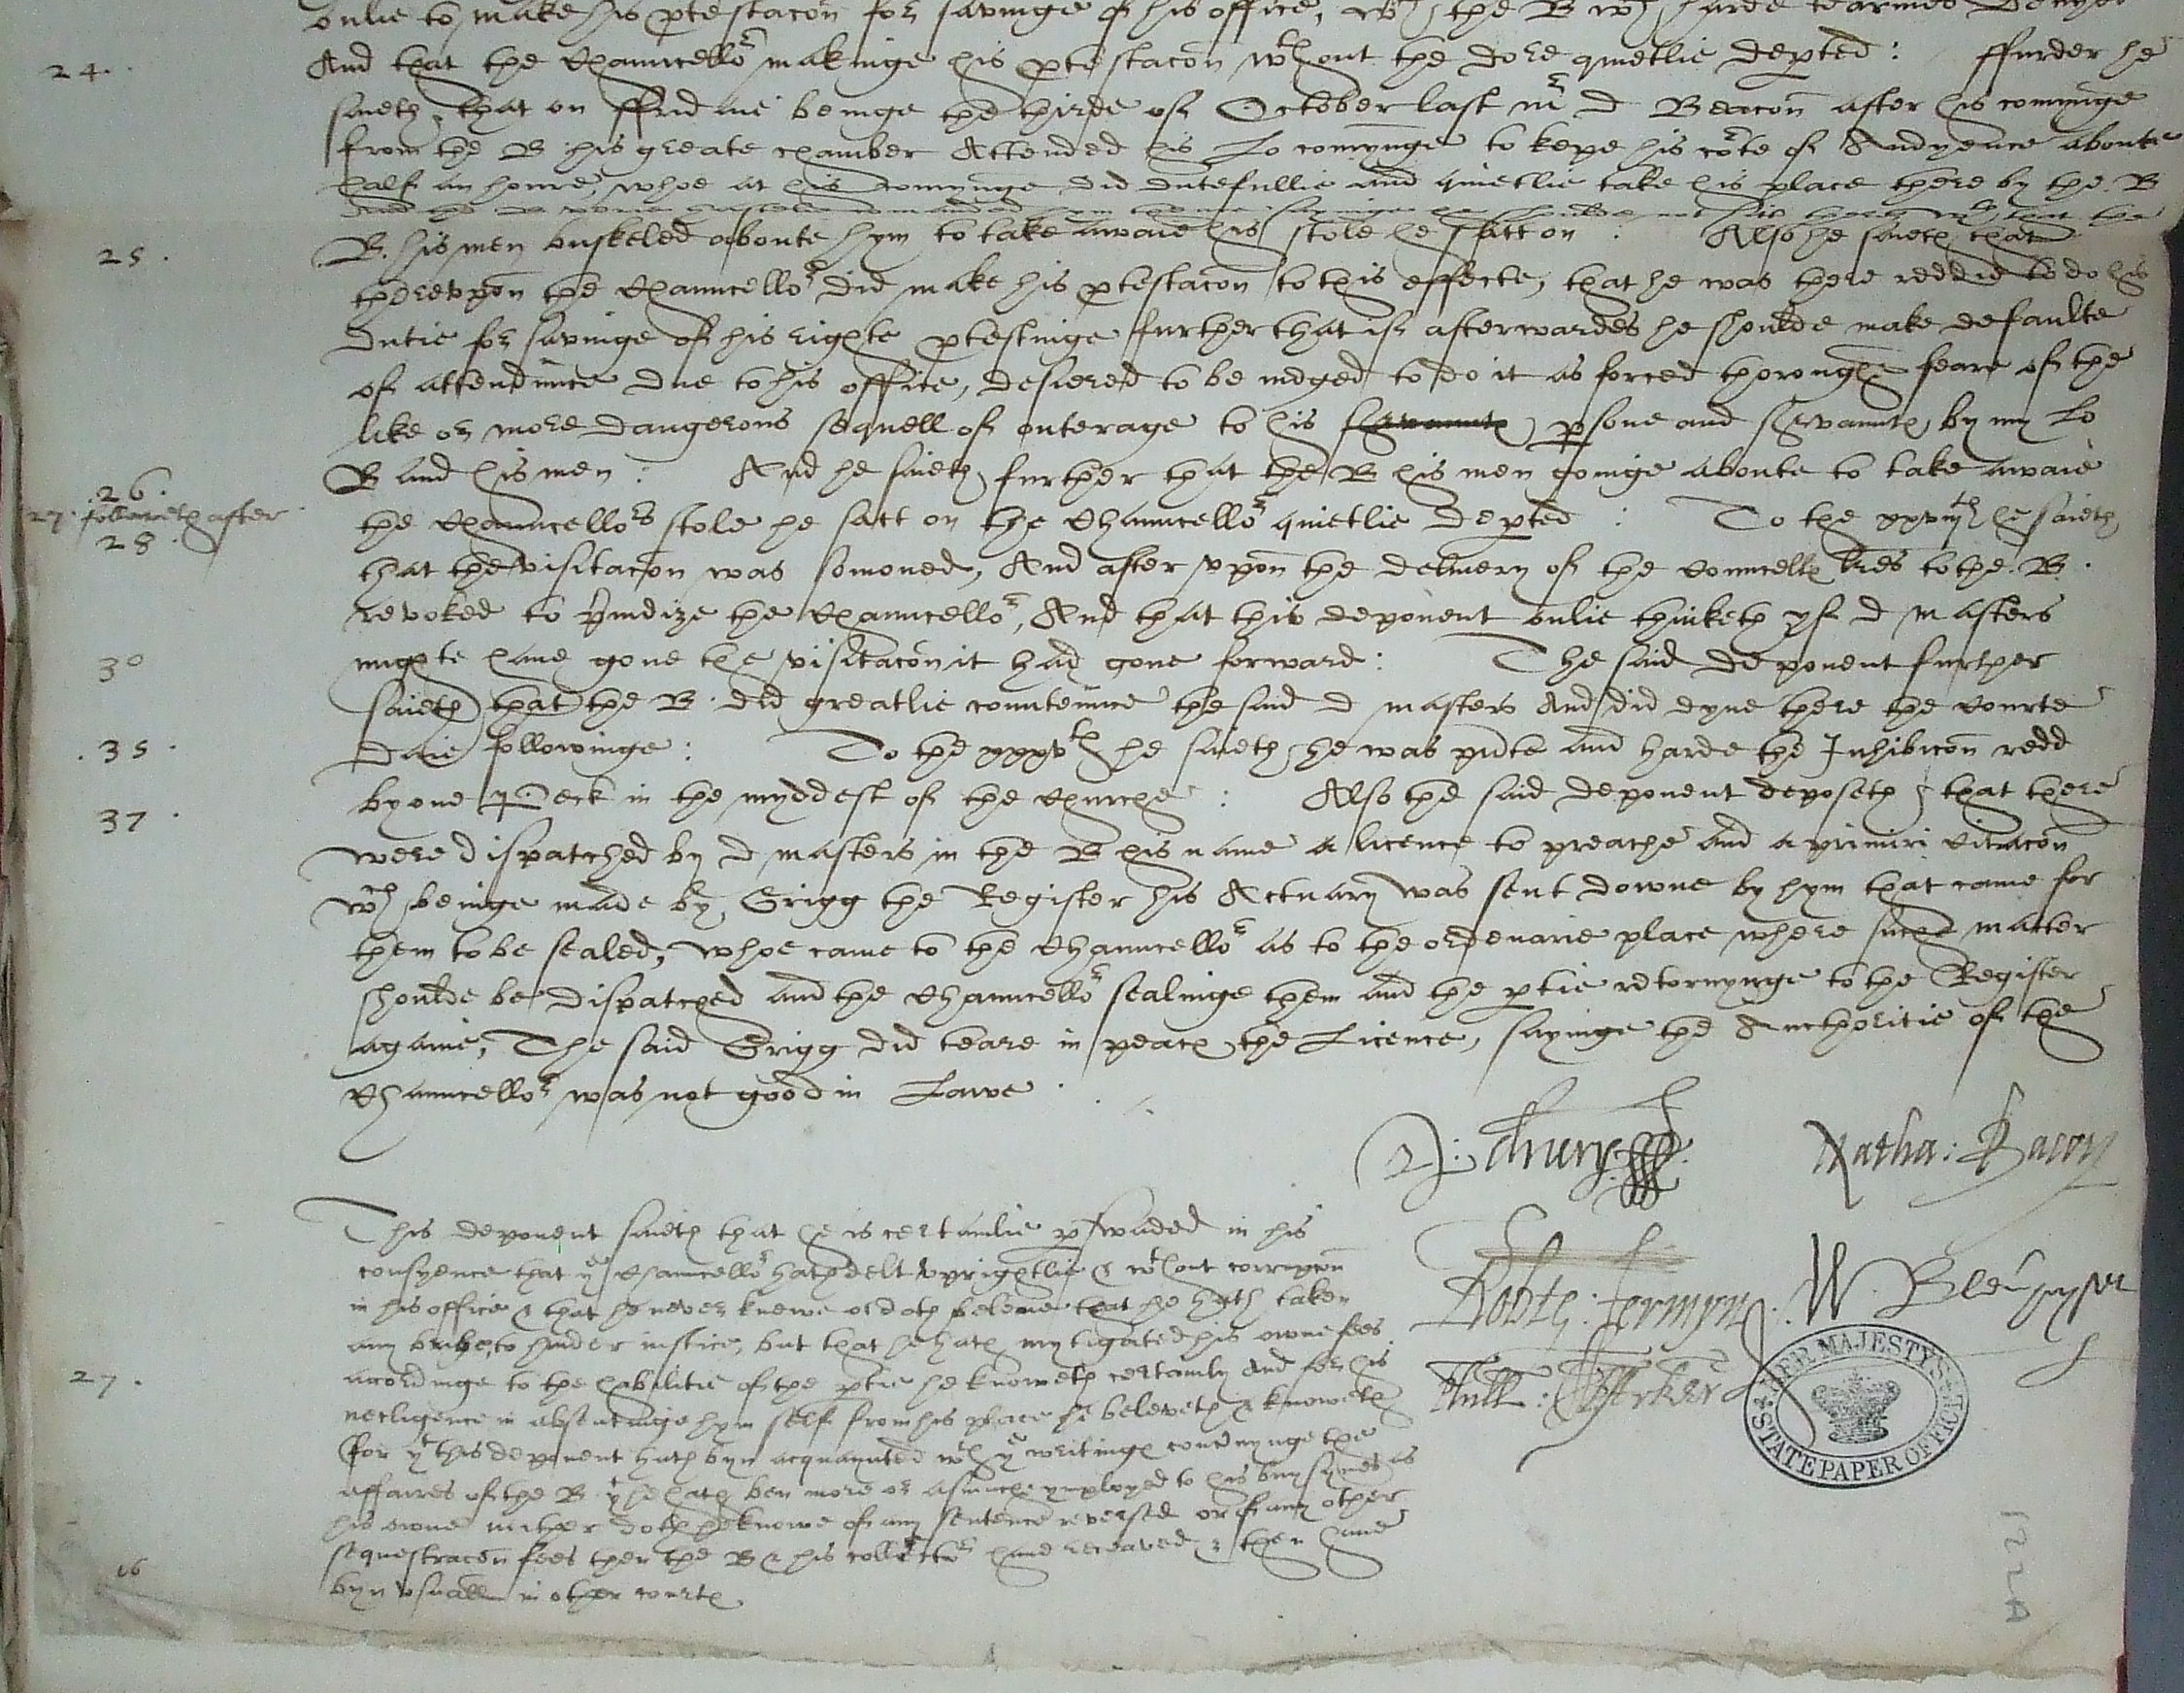 onlie to make his ptestacon for savinge of his office, wch the B wth harde tearmes denyed
24. And that the Chauncellor makinge his ptestacon wthout the dore quietlie depted : ffurder he
saieth, that on ffridaie beinge the thirde of October last mr d Beacon after his comynge
from the B his greate chamber Attended his Lo comynge to kepe his corte of Audyence aboute
half an houre, whoe at his comynge did dutefullie and quietlie take his place there by the B
25. B. his men buskeled aboute hym to take awaie his stole he satt on : Also he saieth that
therevpon the Chauncellor did make his ptestacon to this effecte, that he was there reddie to do his
dutie for savinge of his righte ptestinge further that if afterwardes he shoulde make defaulte
of attendunce due to his office, desiered to be iudged to do it as forced thoroughe feare of the
like or more dangerous sequell of outerage to his servaunts psone and servaunts, by my Lo
B and his men : And he saieth further that the B his men goinge aboute to take awaie
.26.
27. followeth after
28.
the Chauncellors stole he satt on the Chauncellor quietlie depted : To the xxviijth he saieth
that the visitacon was somoned, And after vpon the delivery of the Councells lres to the .B.
revoked to piudize the Chauncellor, And that this deponent onlie thinketh yf d masters
30 mighte have gone the visitacon it had gone forward : The said deponent further
saieth that the B. did greatlie countenunce the said d masters And did dyne there the courte
.35. daie followinge : To the xxxvth he saieth he was pnte and harde the Inhibicon redd
by one Peck in the myddest of the Churche : Also the said deponent deposeth, that there
37. were dispatched by d masters in the B his name a licence to preache and a primiri Citacon
wch beinge made by Grigg the Register his Actuary was sent downe by hym that came for
them to be sealed, whoe came to the Chauncellor as to the ordenarie place where suche matter
shoulde be dispatched and the Chauncellor sealinge them and the ptie retornynge to the Register
againe, The said Grigg did teare in peacs the Licence, sayinge the Aucthoritie of the
Chauncellor was not good in Lawe .
D: drury Natha: Bacon
Robte: Jermyn. W. Blenhayset
Phill: Parker
HER MAJESTY'S STATE PAPER OFFICE
This deponent saieth that he is certainlie pswaded in his
consyence that ye Chauncellor hath delt vprightlie & wthout corrupcon
in his office & that he never knewe or doth beleve that he hath taken
any bribe, to hinder iustice, but that he hath mytigated his owne fees
27. accordinge to the habilitie of the ptie he knoweth certainly And for his
necligence in absentinge hym self from his place he beleveth & knoweth
for yt this deponent hath byn acquaynted wth ye writings concernynge the
affaires of the B yt he hath ben more or asmuche ymployed to his busynes as
his owne nether doth he knowe of any sentence reversed or of any other
sequestracon fees then the B & his collectors have receaved & then have
16 byn vsuall in other courts
122A